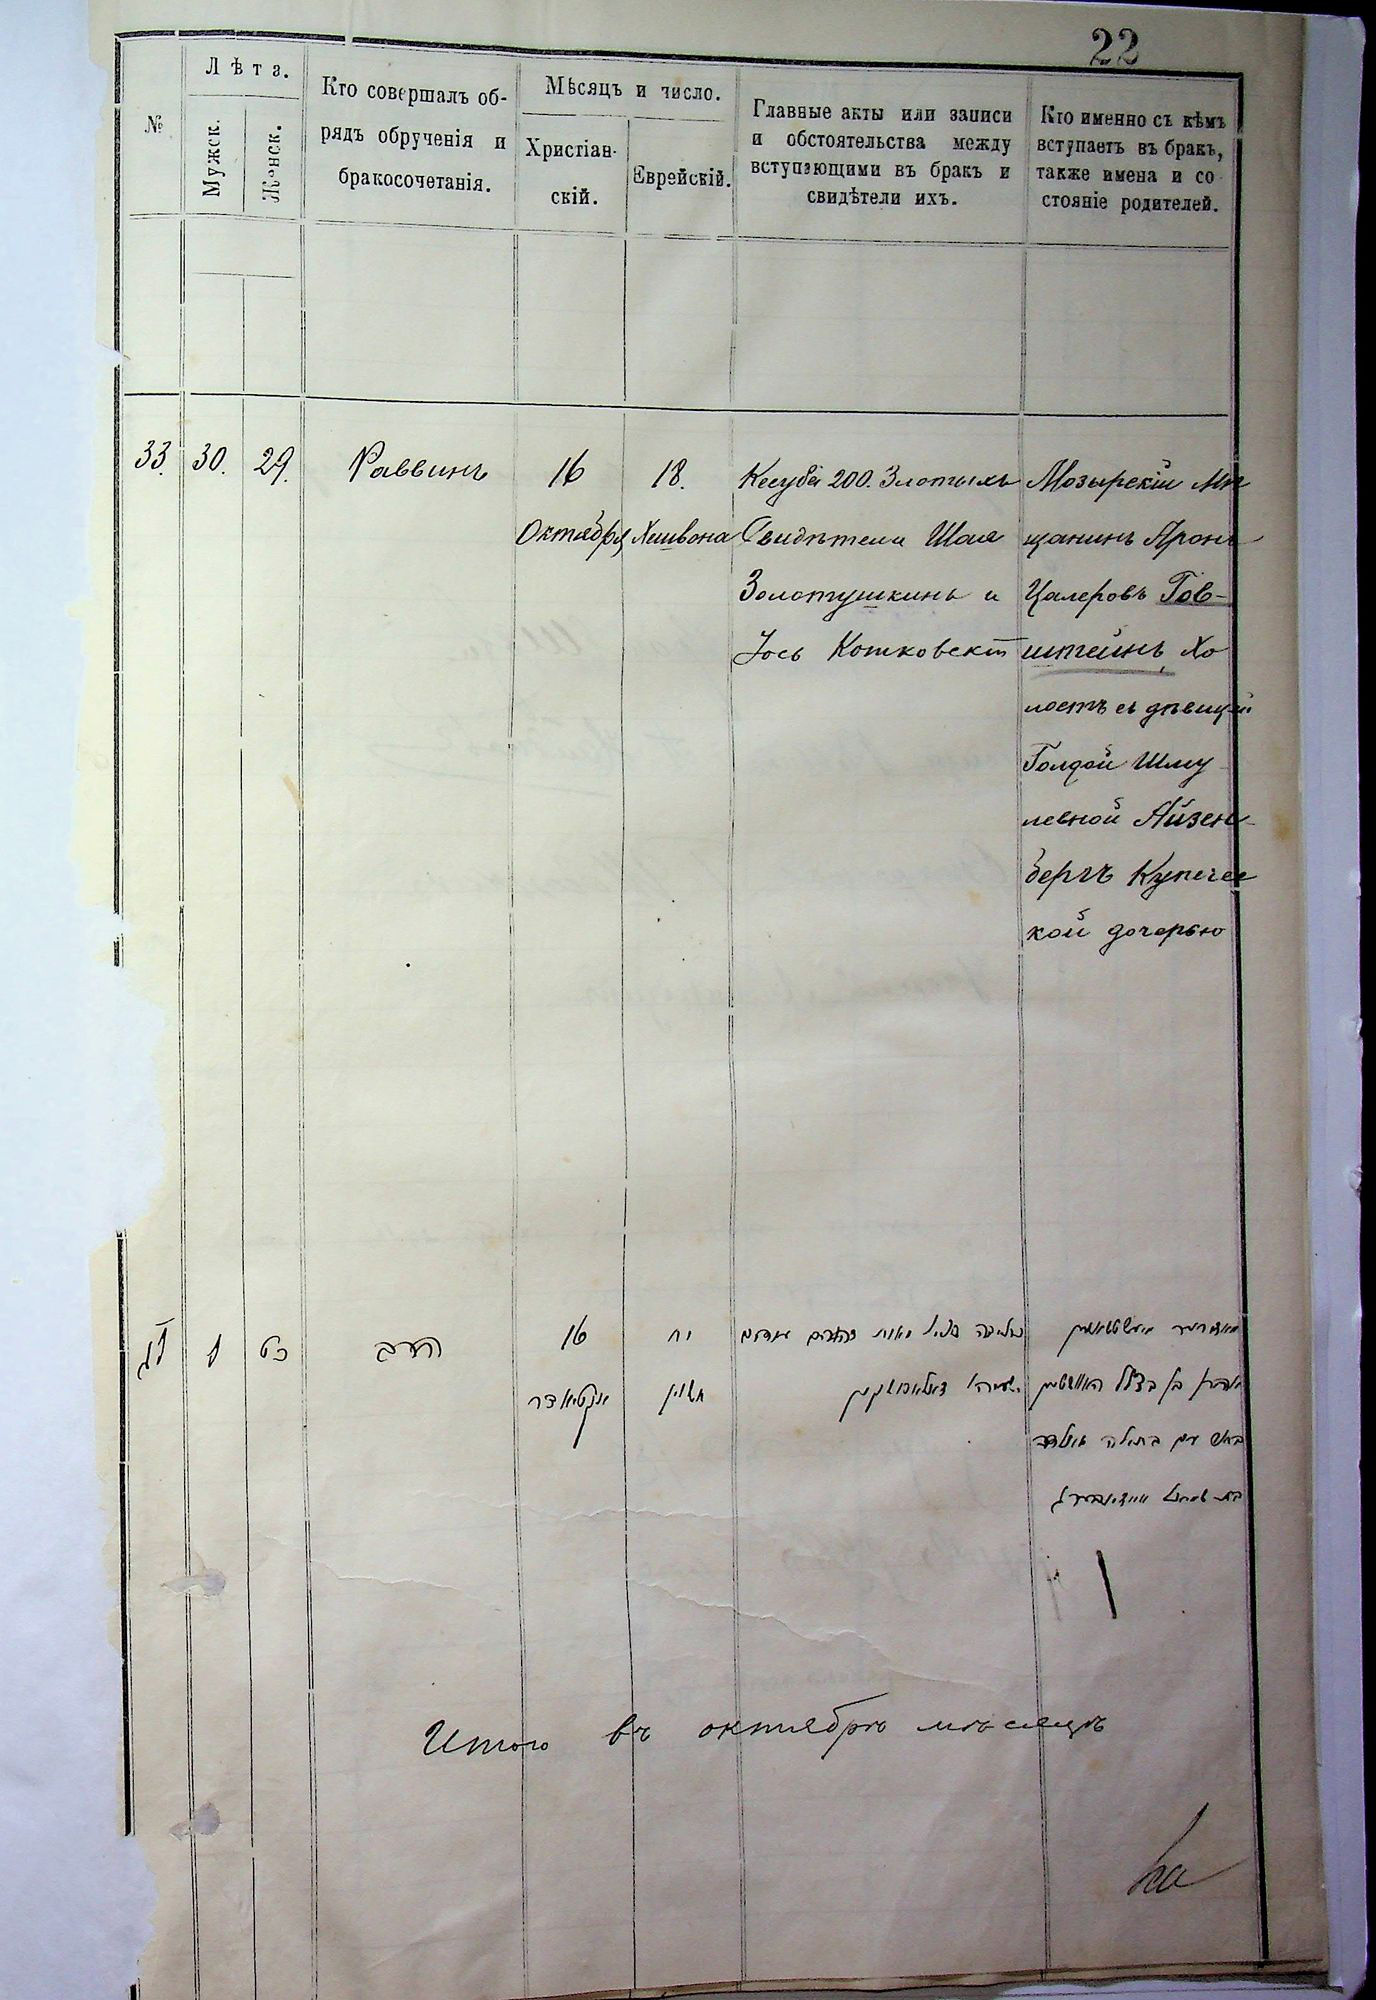 22
№
Лѣта.
Мужск.
Женск.
Кто совершалъ об-
рядъ обрученія и
бракосочетанія.
Мѣсяцъ и число.
Христіан-
скій.
Еврейскій.
Главные акты или записи
и обстоятельства между
вступающими въ бракъ и
свидѣтели ихъ.
Кто именно съ кѣмъ
вступаетъ въ бракъ,
также имена и со
стояніе родителей.
33. 30. 29. Раввинъ
16
Октября
18.
Хешвона
Кесуба 200. Злотыхъ
Свидѣтели Шая
Золотушкинъ и
Іось Котковскій
Мозырскій Мѣ
щанинъ Аронъ
Цалеровъ Гов-
штейнъ, Хо
лостъ съ дѣвицей
Голдой Шму
левной Айзен-
бергъ Купечес
кой дочерью
לג ל כט הרב
16
אקטיאבר
יח
חשון
אהרן בן בצלל
בת שמואל
Итого въ октябрѣ мѣсяцѣ
на